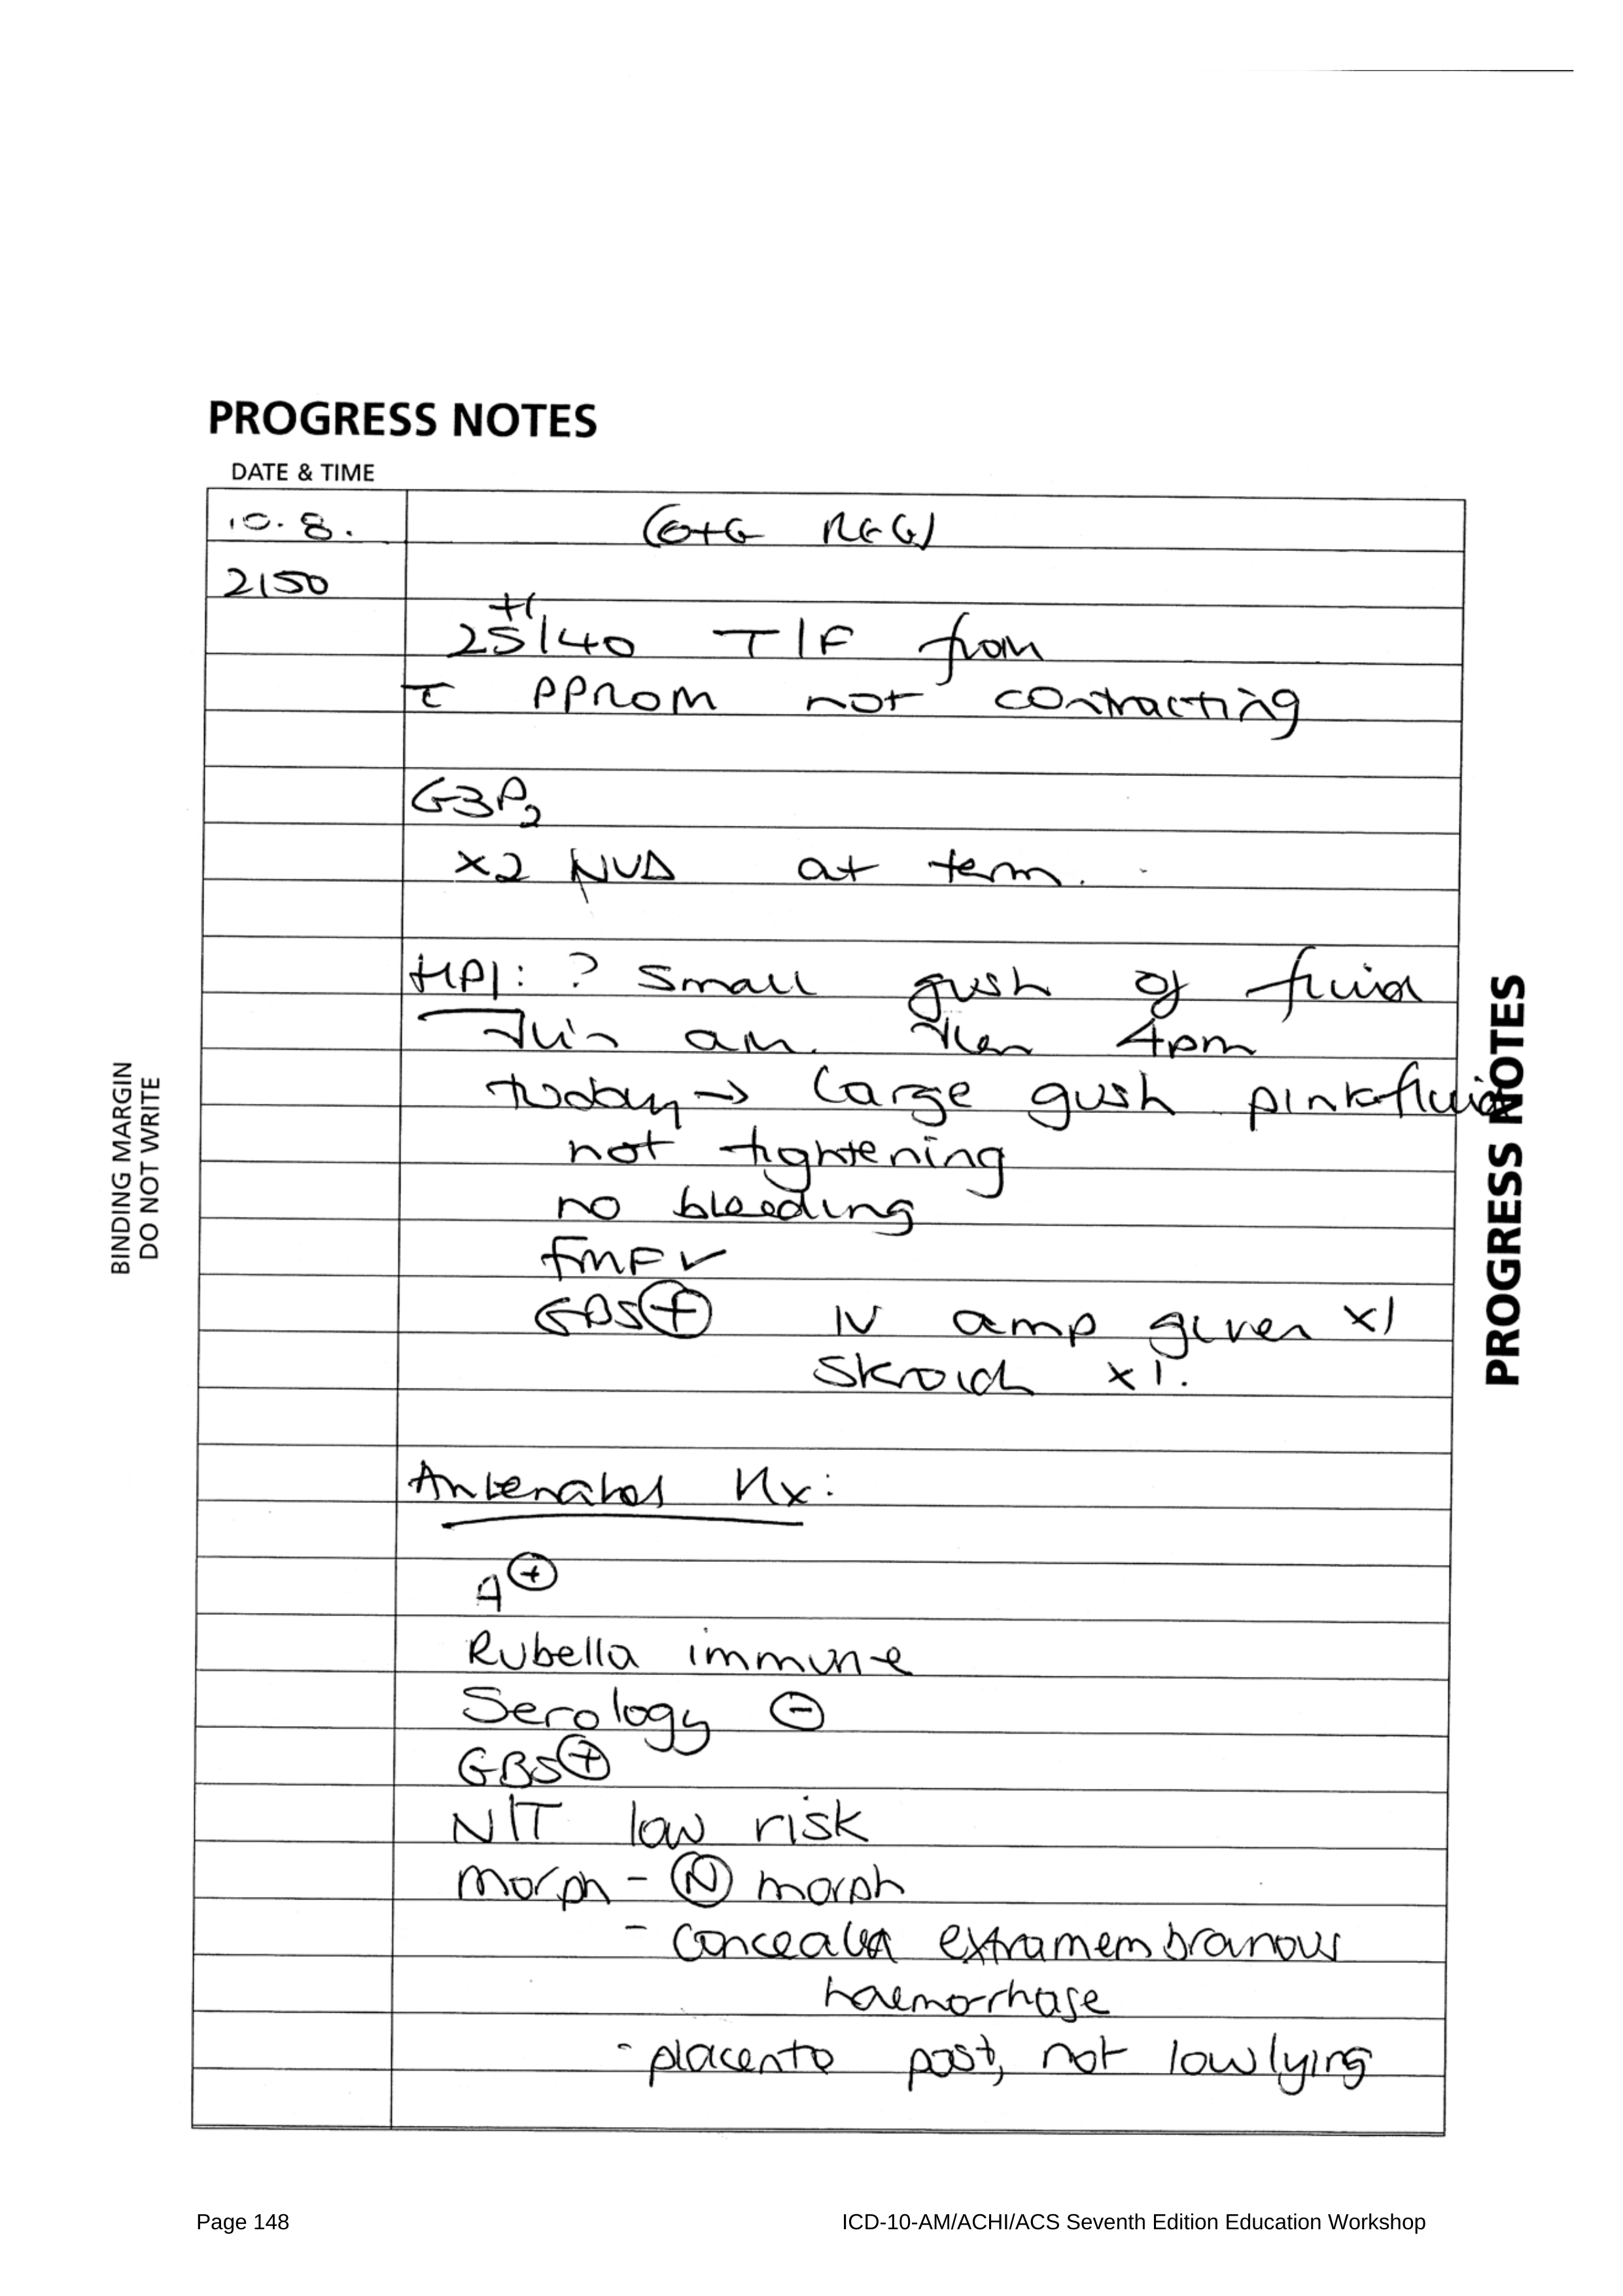 PROGRESS NOTES
DATE & TIME
10.8. (O+G REG)
2150
25+1/40 T/F from
c̄ PPROM not contracting
G3P2
x2 NVD at term.
HPI: ? Small gush of fluid
this am. then 4pm
today → large gush pink fluid
not tightening
no bleeding
FMF ✓
GBS ⊕ IV amp given x1
Steroid x1.
Antenatal Hx:
A ⊕
Rubella immune
Serology ⊖
GBS ⊕
NIT low risk
morph - Ⓝ morph
- concealed extramembranous
haemorrhage
- placenta post, not low lying
BINDING MARGIN
DO NOT WRITE
PROGRESS NOTES
Page 148 ICD-10-AM/ACHI/ACS Seventh Edition Education Workshop